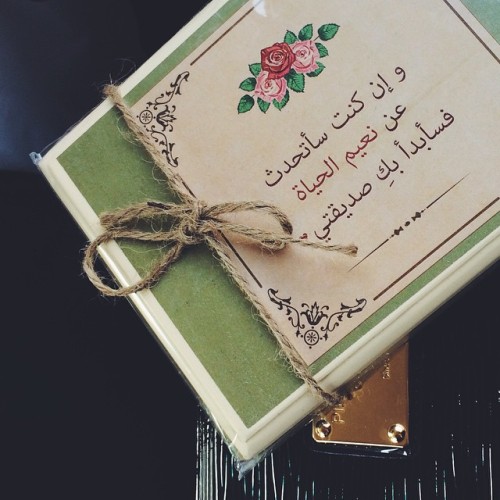 و إن كنت سأتحدث
عن نعيم الحياة
فسأبدأ بكِ صديقتي